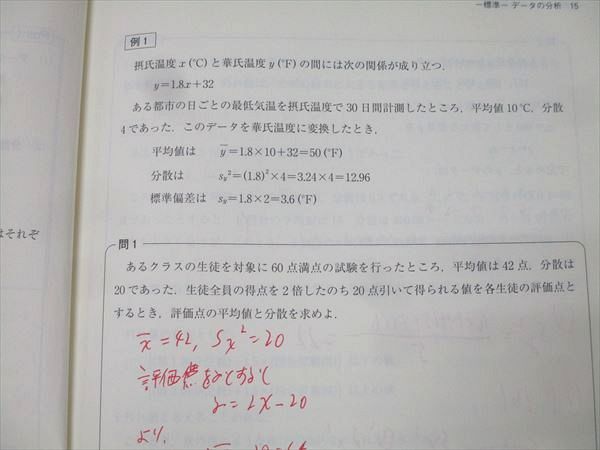 ―標準― データの分析 15
例1
摂氏温度 x (℃) と華氏温度 y (°F) の間には次の関係が成り立つ.
y=1.8x+32
ある都市の日ごとの最低気温を摂氏温度で30日間計測したところ, 平均値10℃, 分散
4であった. このデータを華氏温度に変換したとき,
平均値は y̅=1.8×10+32=50 (°F)
分散は s_y²=(1.8)²×4=3.24×4=12.96
標準偏差は s_y=1.8×2=3.6 (°F)
はそれぞ
問1
あるクラスの生徒を対象に60点満点の試験を行ったところ, 平均値は42点, 分散は
20であった. 生徒全員の得点を2倍したのち20点引いて得られる値を各生徒の評価点と
するとき, 評価点の平均値と分散を求めよ.
x̅=42, S_x²=20
評価点をyとすると
y=2x-20
より,